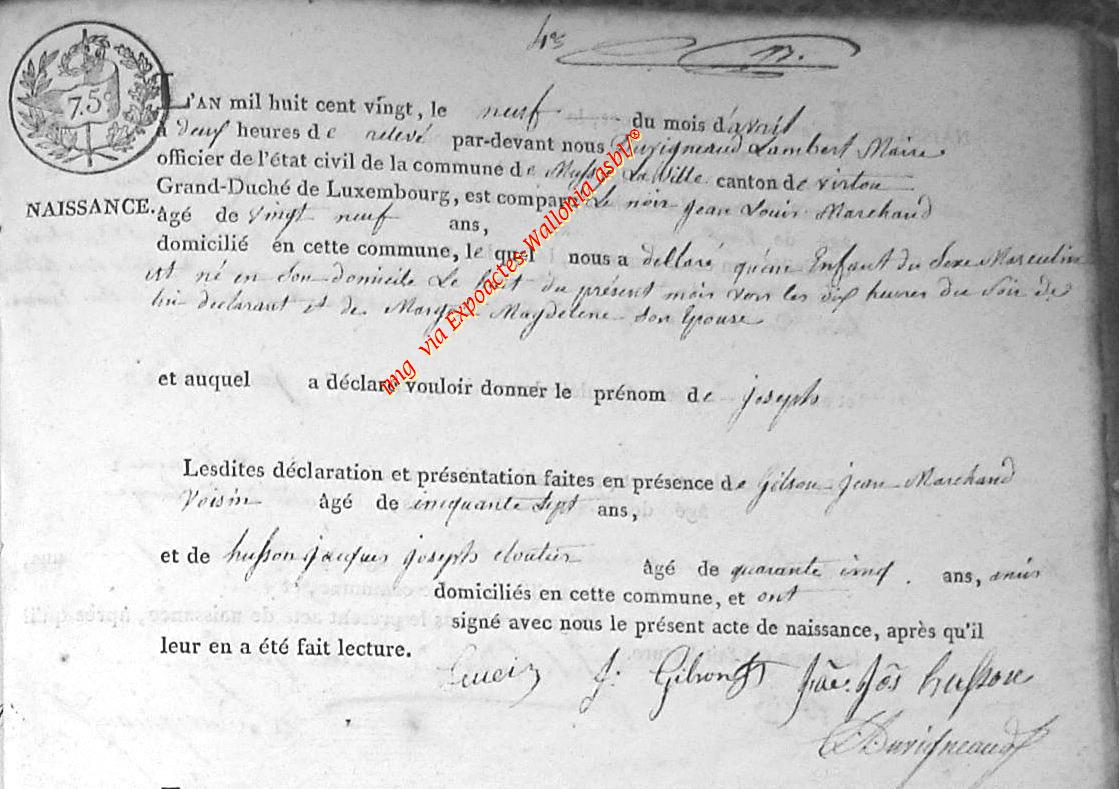 75c
L'AN mil huit cent vingt, le neuf du mois d'avril
à deux heures de relevé par-devant nous Duvigneaud Lambert Maire
officier de l'état civil de la commune de Musson La ville canton de virton
Grand-Duché de Luxembourg, est comparu Le noir Jean Louis Marchand
NAISSANCE.
âgé de vingt neuf ans,
domicilié en cette commune, le quel nous a déllaré qu'un Enfant du Sexe Masculin
est né en Son domicile Le huit du présent mois vers les dix heures du Soir de
lui declarant et de Magdelene Son Epouse
et auquel a déclaré vouloir donner le prénom de joseph
Lesdites déclaration et présentation faites en présence de Gilson Jean Marchand
Voisin âgé de cinquante Sept ans,
et de husson jacques joseph cloutier âgé de quarante cinq ans, amis
domiciliés en cette commune, et ont
signé avec nous le présent acte de naissance, après qu'il
leur en a été fait lecture.
J: Gilson Jâc: Jôs husson
Duvigneaud
mg via Expoactes Wallonia asbl/©